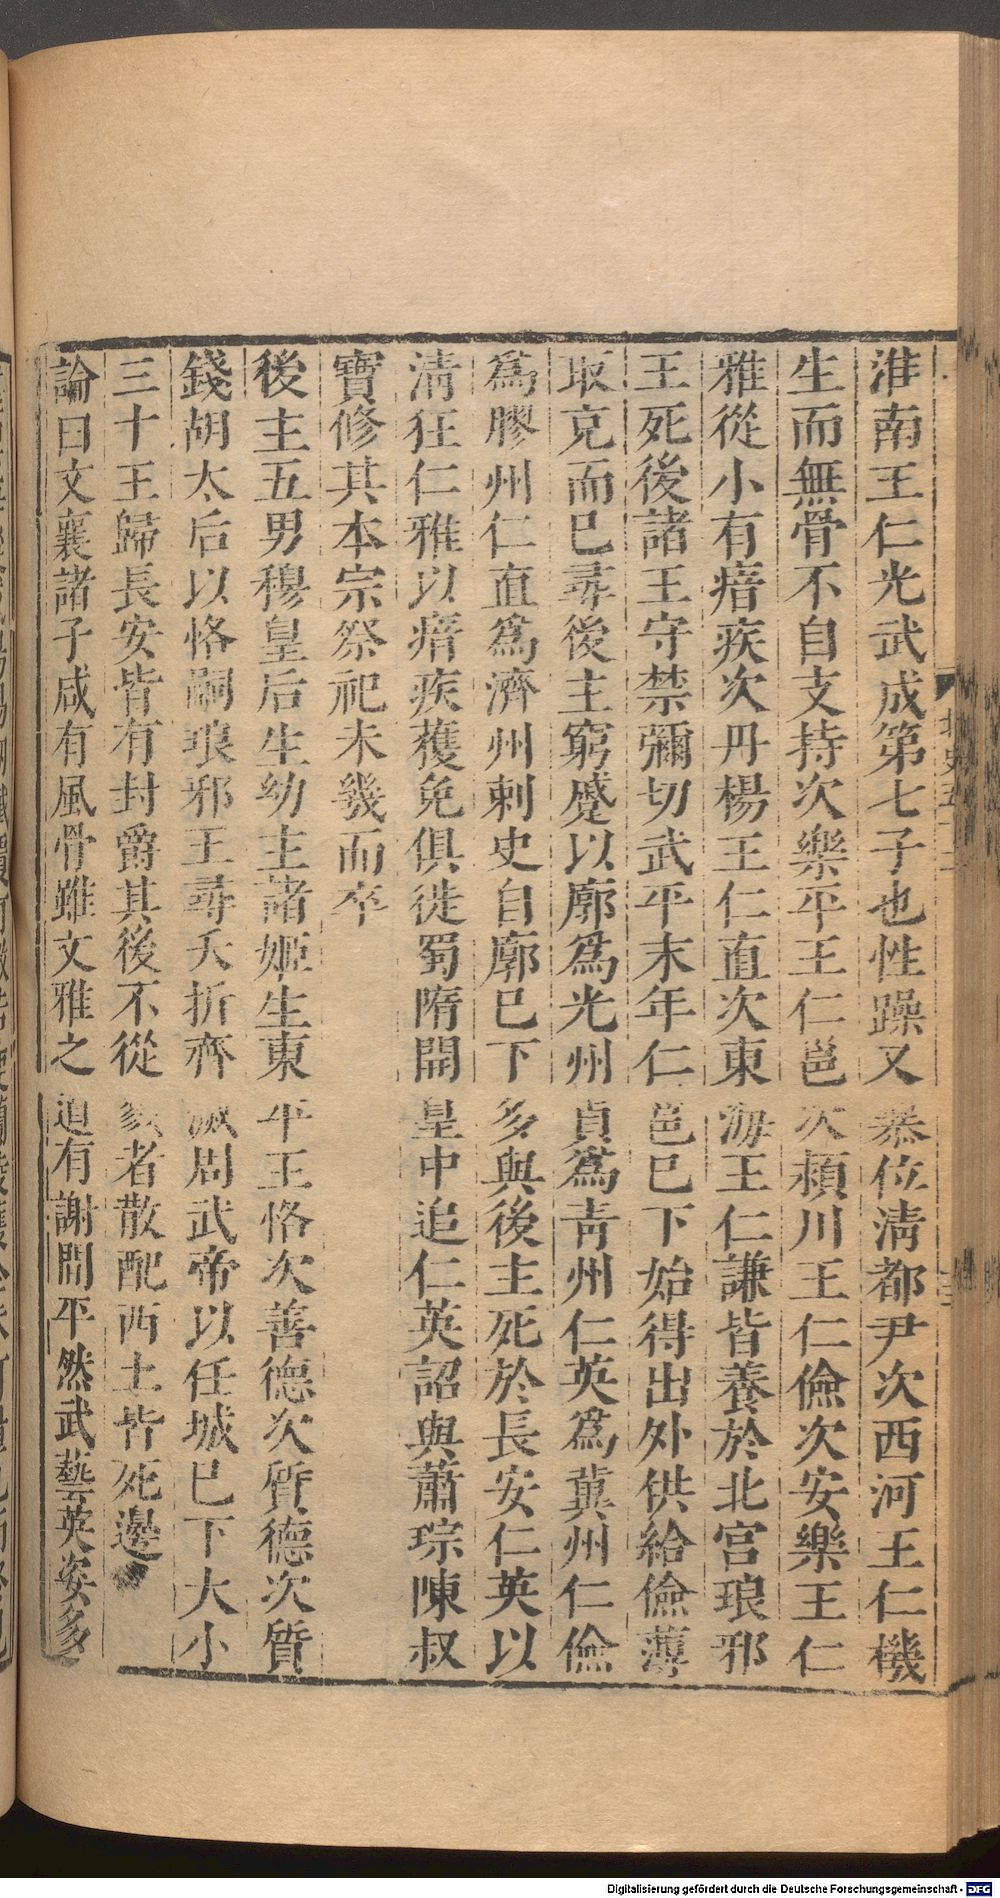 淮南王仁光武成第七子也性躁又暴位淸都尹次西河王仁機
生而無骨不自支持次樂平王仁邕次潁川王仁儉次安樂王仁
雅從小有瘖疾次丹楊王仁直次東海王仁謙皆養於北宮琅邪
王死後諸王守禁彌切武平末年仁邕已下始得出外供給儉薄
取充而已尋後主窮蹙以廓爲光州貞爲靑州仁英爲冀州仁儉
爲膠州仁直爲濟州刺史自廓已下多與後主死於長安仁英以
淸狂仁雅以瘖疾獲免俱徙蜀隋開皇中追仁英詔與蕭琮陳叔
寶修其本宗祭祀未幾而卒
後主五男穆皇后生幼主諸姬生東平王恪次善德次質德次質
錢胡太后以恪嗣琅邪王尋夭折齊滅周武帝以任城已下大小
三十王歸長安皆有封爵其後不從戮者散配西土皆死邊
論曰文襄諸子咸有風骨雖文雅之道有謝間平然武藝英姿多
Digitalisierung gefördert durch die Deutsche Forschungsgemeinschaft - DFG